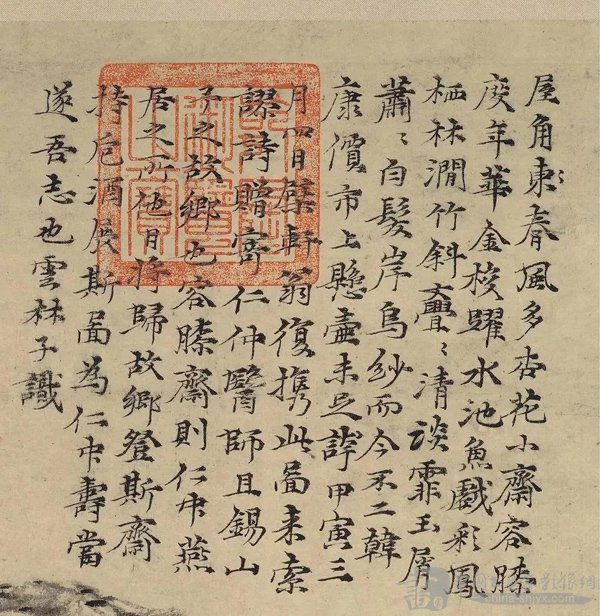 屋角東春風多杏花小齋容膝
度年華金梭躍水池魚戲彩鳳
栖林澗竹斜亹〻清談霏玉屑
蕭〻白髮岸烏紗而今不二韓
康價市上懸壺未足誇甲寅三
月四日蘗軒翁復攜此啚来索
謬詩贈寄仁仲醫師且錫山
予之故鄉也容膝齋則仁中燕
居之所他日将歸故鄉登斯齋
持卮酒展斯啚為仁中壽當
遂吾志也雲林子識